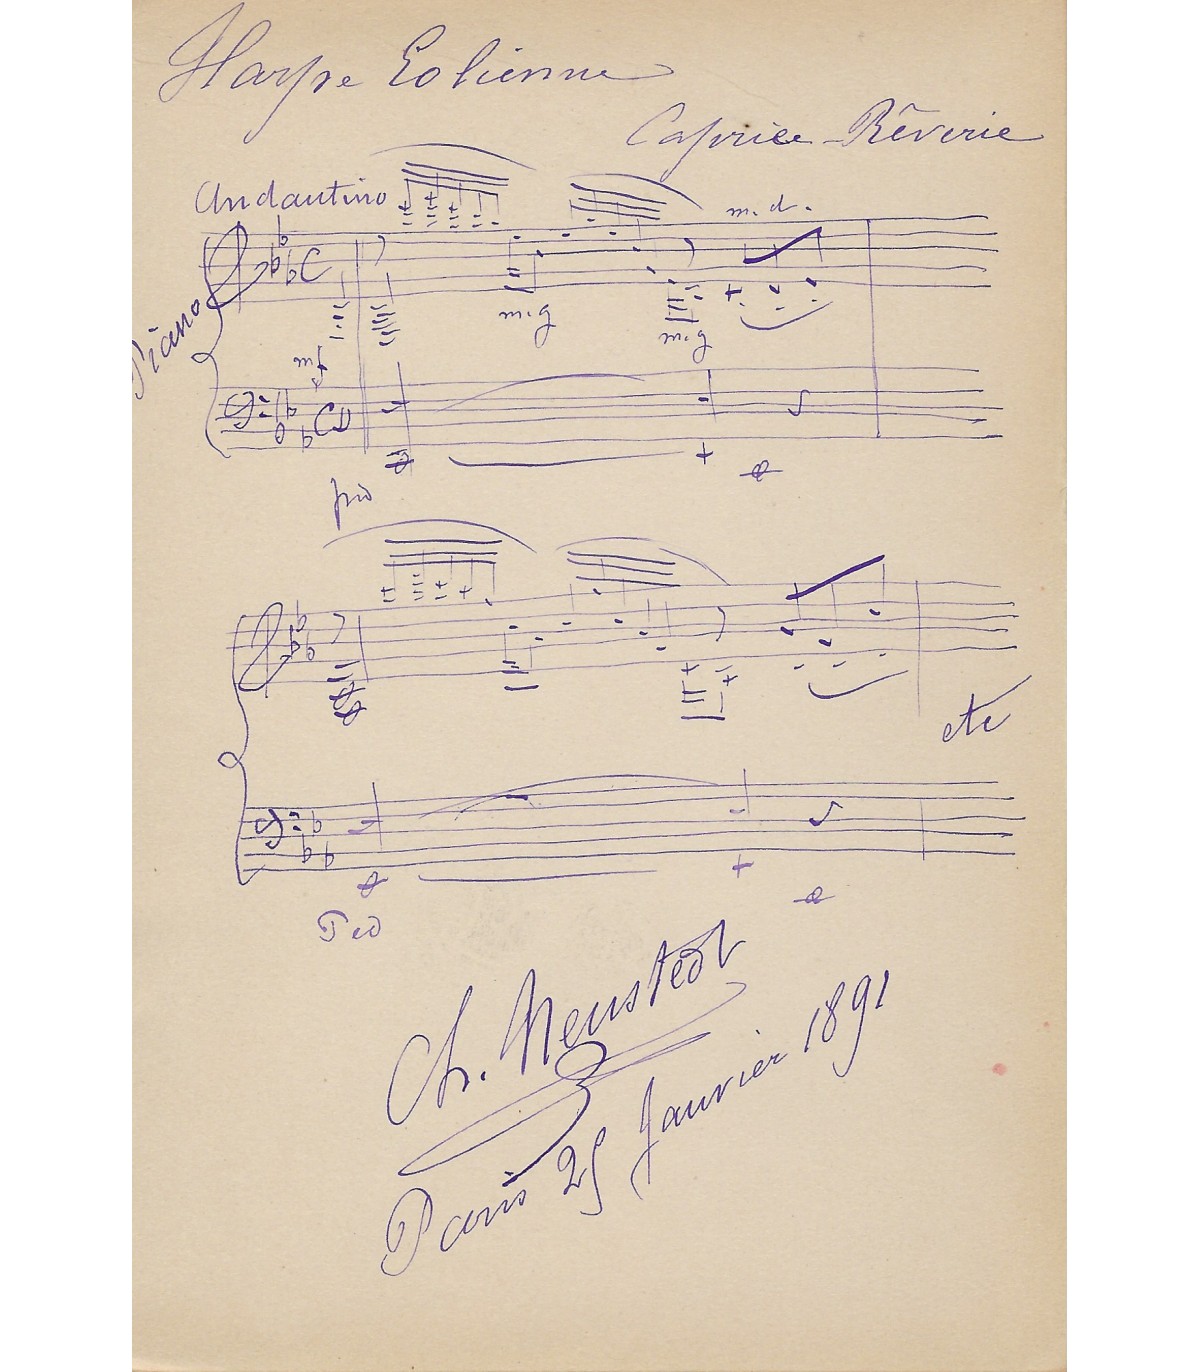 Harpe Eolienne
Caprice Rêverie
Andantino
m. d.
Piano
m.g
m.g
etc
Ped
Ch. Neustedt
Paris 25 Janvier 1891